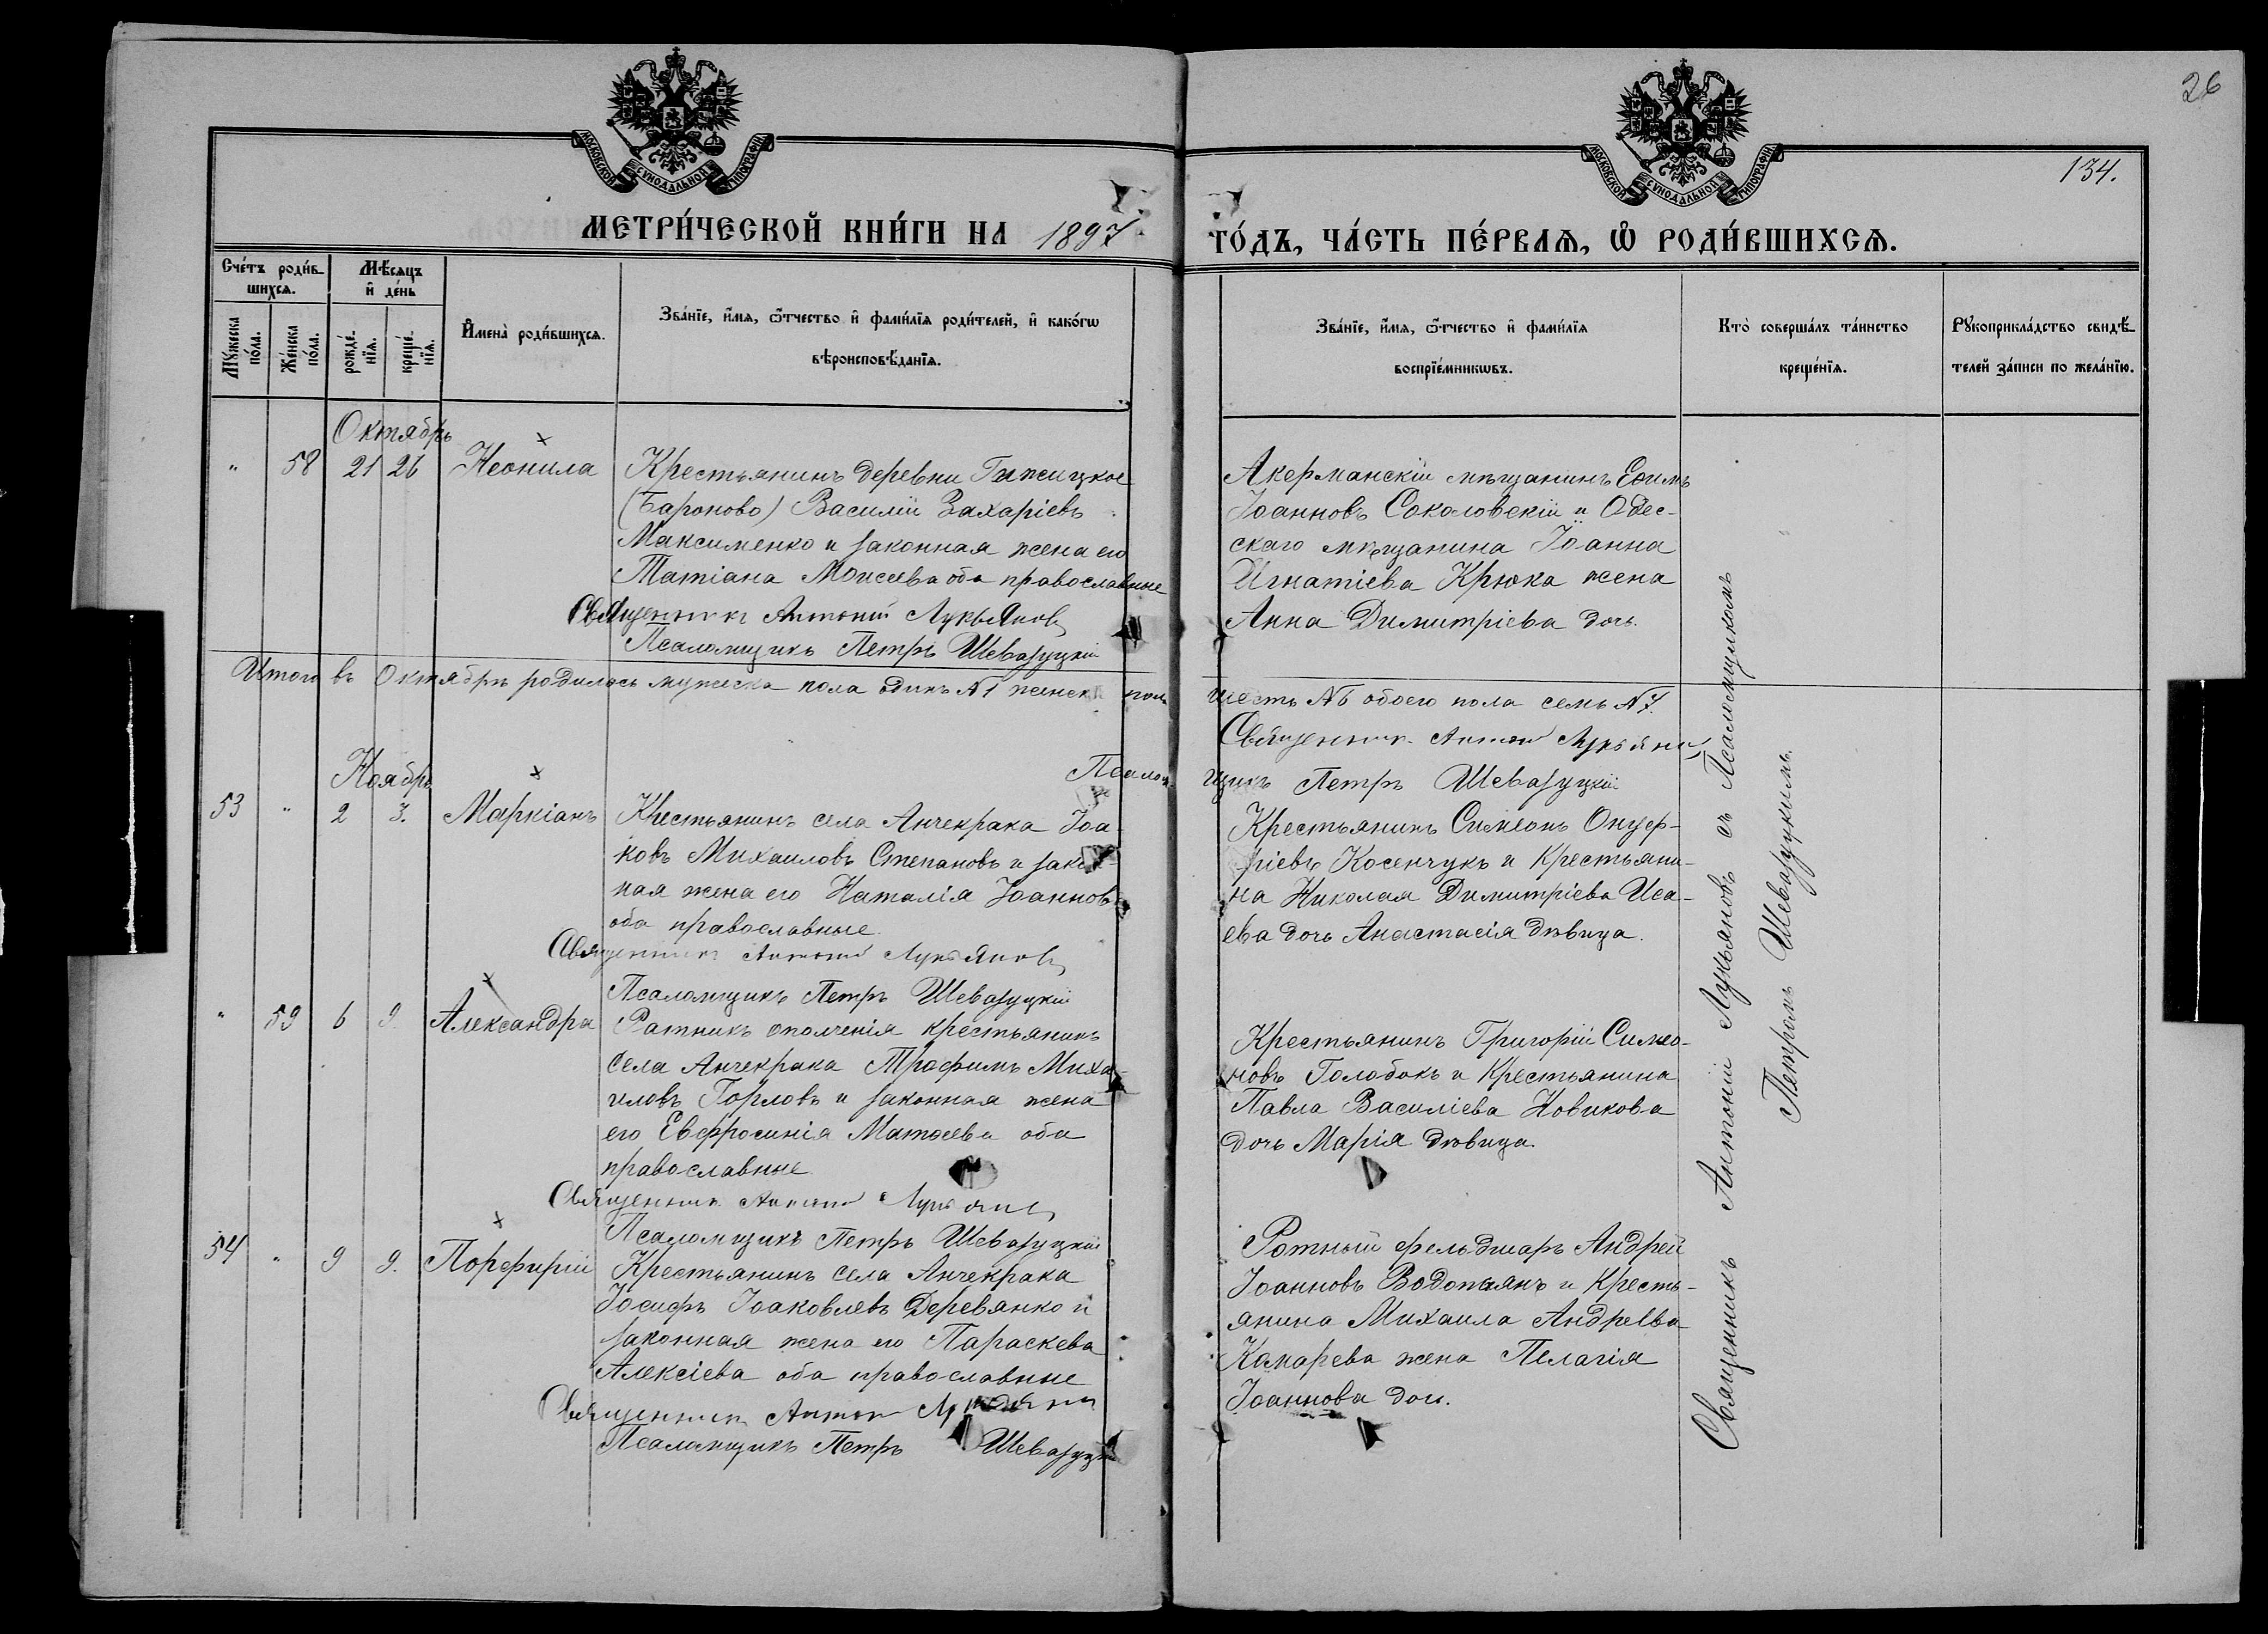 26
134.
МОСКОВСКОЙ СУНОДАЛЬНОЙ ТИПОГРАФІИ
МОСКОВСКОЙ СУНОДАЛЬНОЙ ТИПОГРАФІИ
МЕТРИ́ЧЕСКОЙ КНИ́ГИ НА 1897 ГО́ДЪ, ЧА́СТЬ ПЕ́РВАѦ, Ѽ РОДИ́ВШИХСѦ.
Сче́тъ роди́в-
шихсѧ.
Мѣ́сѧцъ
и҆ де́нь
Мꙋ́жеска
по́ла.
Же́нска
по́ла.
рожде́-
нїѧ.
креще́-
нїѧ.
И҆мена̀ роди́вшихсѧ.
Зва́нїе, и҆́мѧ, ѻ҆́тчество и҆ фами́лїѧ роди́телей, и҆ како́гѡ
вѣроисповѣ́данїѧ.
Зва́нїе, и҆́мѧ, ѻ҆́тчество и҆ фами́лїѧ
воспрїе́мникѡвъ.
Кто̀ соверша́лъ та́инство
креще́нїѧ.
Рꙋкоприкла́дство свидѣ́-
телей за́писи по жела́нїю.
Октябрь
" 58 21 26 Неонила
Крестьянинъ деревни
(Бароново) Василій Захаріевъ
Максименко и законная жена его
Татіана Моисеева оба православные
Священникъ Антоній Лукьяновъ
Псаломщикъ Петръ Шевазуцкій
Акерманскій мѣщанинъ Ефимъ
Іоанновъ Соколовскій и Одес-
скаго мѣщанина Іоанна
Игнатіева Крюка жена
Анна Димитріева дочь.
Итого въ Октябрѣ родилось мужеска пола одинъ №1 женска пола шесть №6 обоего пола семь №7.
Священникъ Антоній Лукьяновъ
Псаломщикъ Петръ Шевазуцкій
Ноябрь
53 " 2 3. Маркіанъ
Крестьянинъ села Анчекрака Іоа-
ковъ Михаиловъ Степановъ и закон-
ная жена его Наталія Іоаннова
оба православные
Священникъ Антоній Лукьяновъ
Псаломщикъ Петръ Шевазуцкій
Крестьянинъ Симеонъ Онуф-
ріевъ Косенчукъ и Крестьяни-
на Николая Димитріева Иса-
ева дочь Анастасія дѣвица.
" 59 6 9. Александра
Ратникъ ополченія крестьянинъ
села Анчекрака Трофимъ Миха-
иловъ Горловъ и законная жена
его Евфросинія Матѳеева оба
православные
Священникъ Антоній Лукьяновъ
Псаломщикъ Петръ Шевазуцкій
Крестьянинъ Григорій Симео-
новъ Голобокъ и Крестьянина
Павла Василіева Новикова
дочь Марія дѣвица.
54 " 9 9. Порфирій
Крестьянинъ села Анчекрака
Іосифъ Іоаковлевъ Деревянко и
законная жена его Параскева
Алексіева оба православные
Священникъ Антоній Лукьяновъ
Псаломщикъ Петръ Шевазуцкій
Ротный фельдшаръ Андрей
Іоанновъ Водопьянъ и Кресть-
янина Михаила Андреева
Комарева жена Пелагія
Іоаннова дочь.
Священникъ Антоній Лукьяновъ съ Псаломщикомъ
Петромъ Шевазуцкимъ.